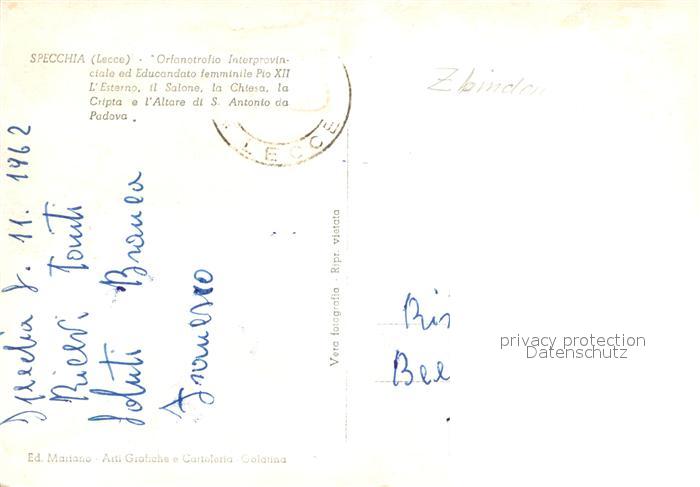 SPECCHIA (Lecce) - "Orfanotrofio Interprovin-
ciale ed Educandato femminile Pio XII
L'Esterno, il Salone, la Chiesa, la
Cripta e l'Altare di S. Antonio da
Padova.
LECCE
Zbinden
Specchia 8. 11. 1962
Ricevi Tanti
Saluti Branca
Francesco
Vera fotografia - Ripr. vietata
Ris
privacy protection
Datenschutz
Ed. Mariano - Arti Grafiche e Cartoleria - Galatina